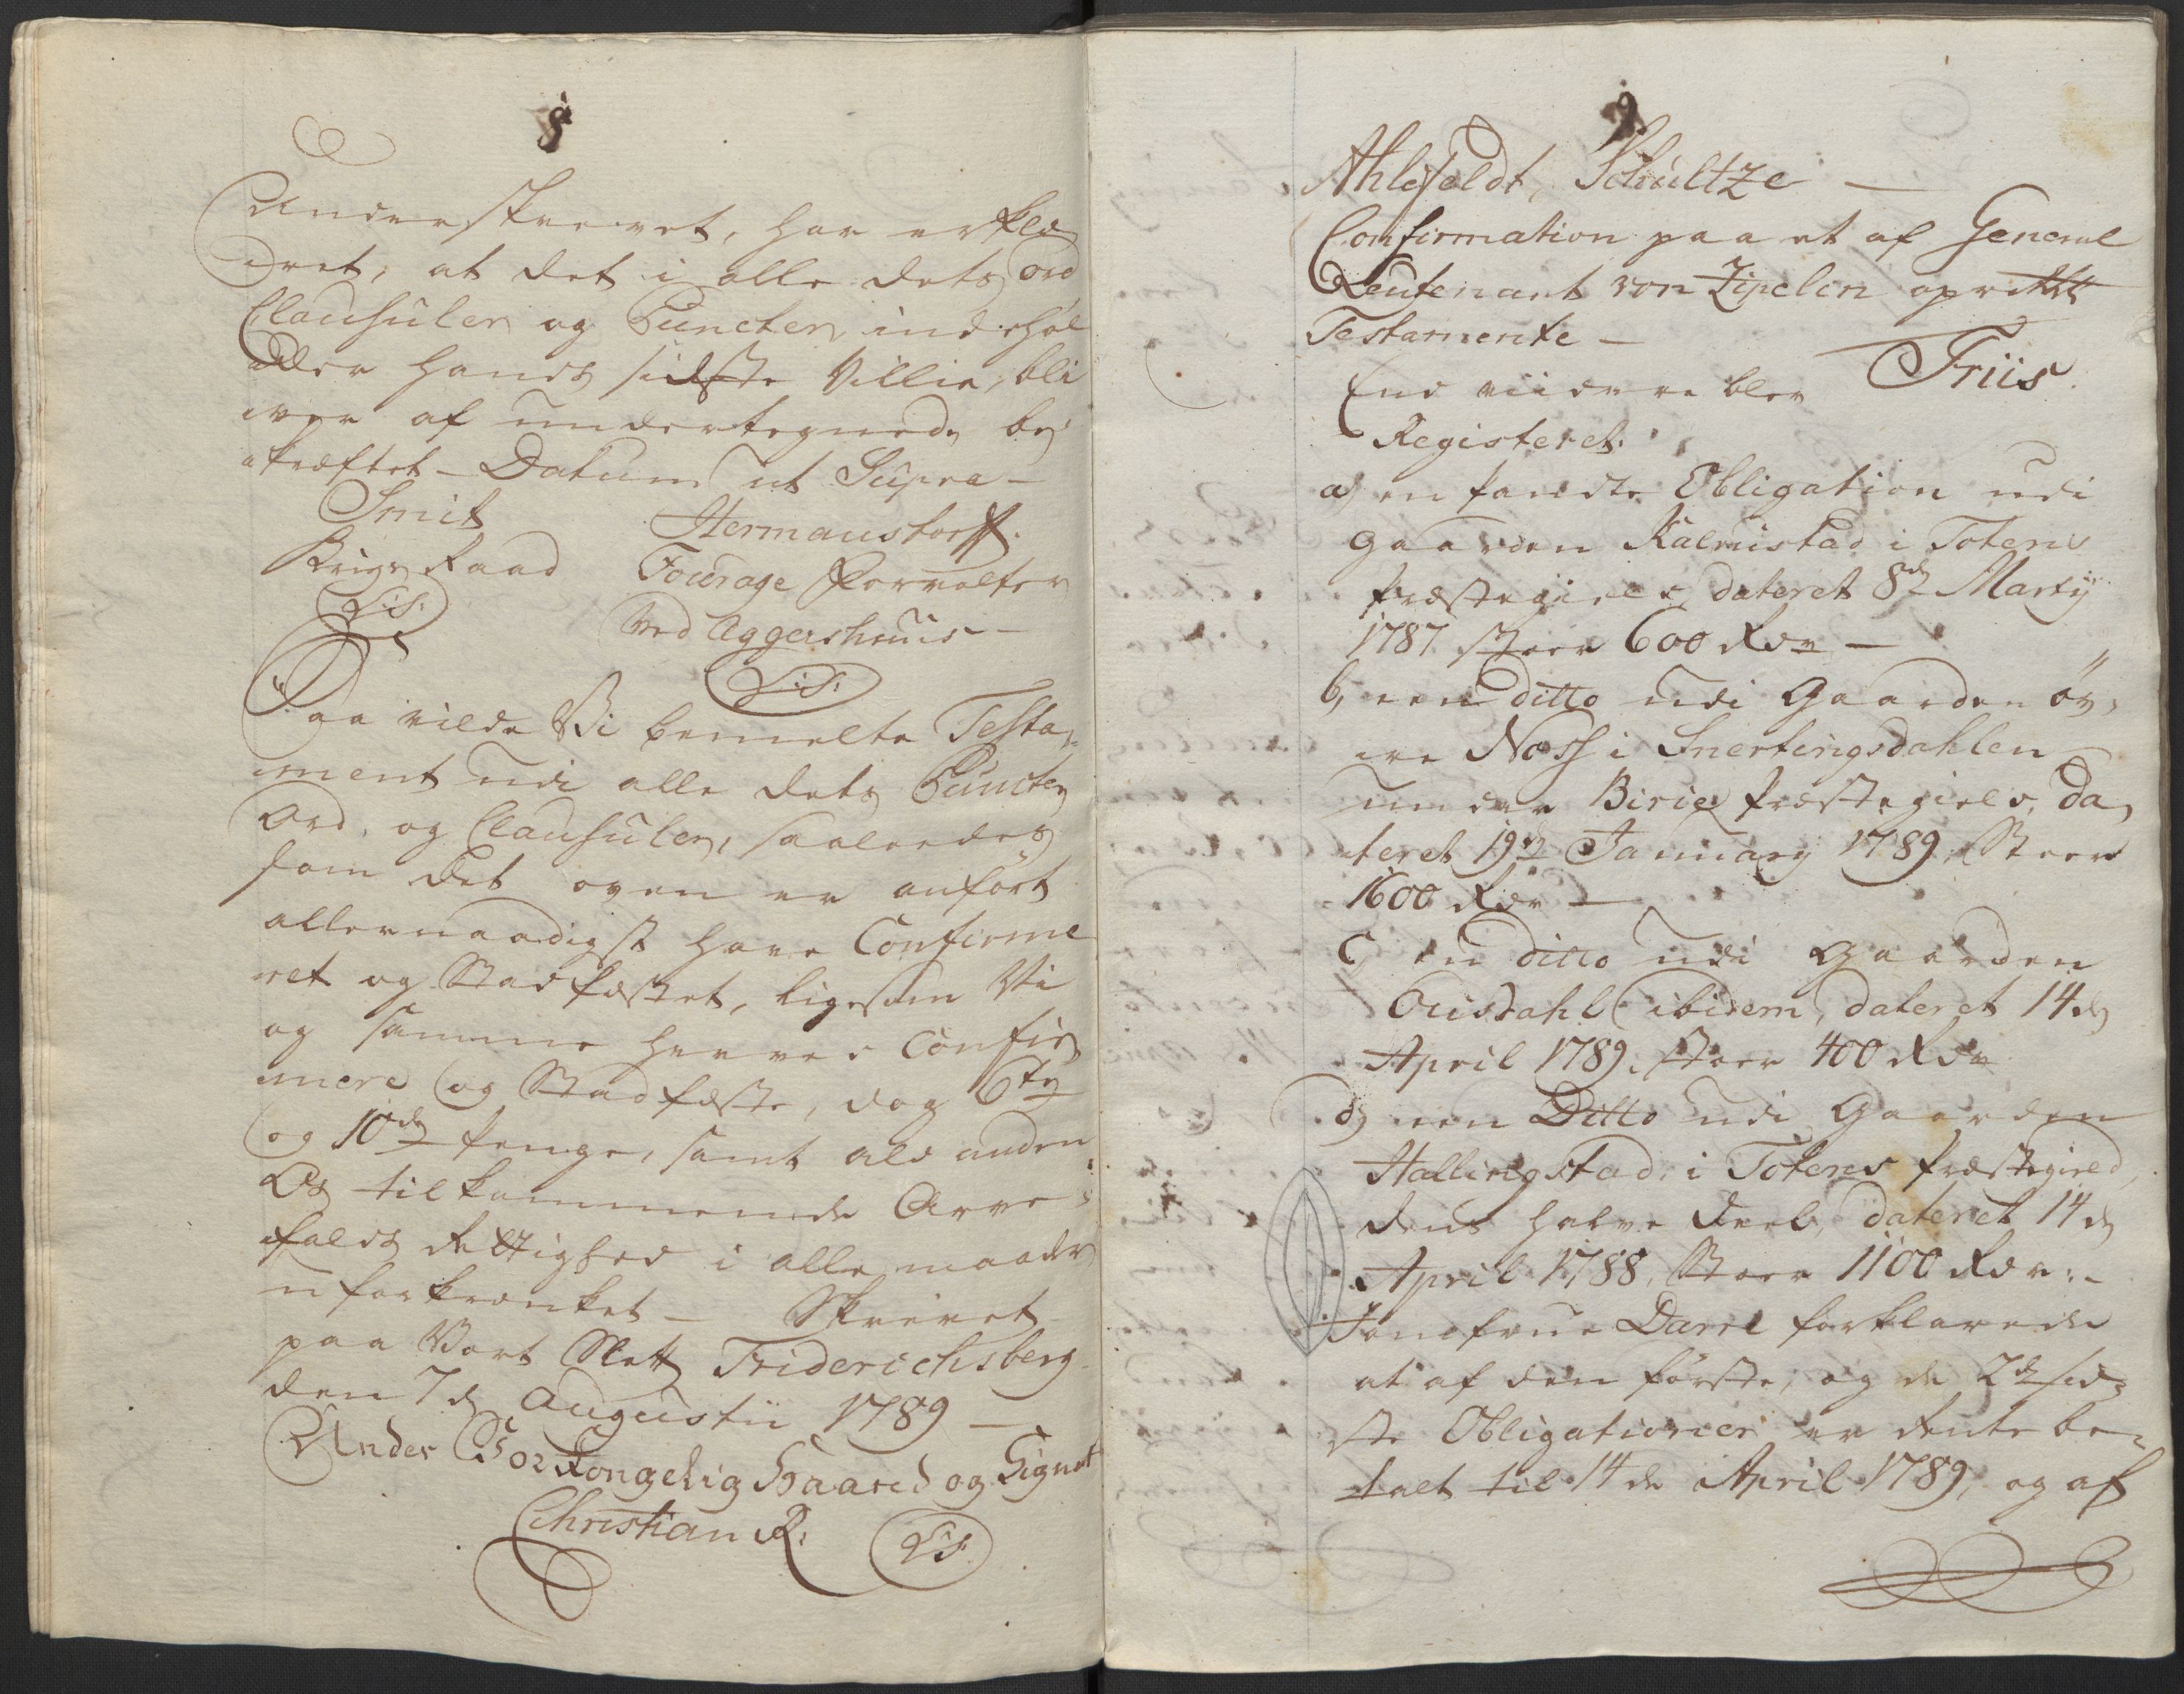 8
Underskrevet, har erklæ
ret, at det i alle dets Ord
Clausuler og Puncter indehol
der hands sidste Villie, bli
ver af undertegnede be
kræftet – Datum ut Supra –
Smit Hermanstorff.
Krigs Raad Fourage Forvalter
L:S: ved Aggershuus –
L:S:
Saa vilde Vi bemelte Testa„
ment udi alle dets Puncter
Ord, og Clausuler, saaledes
som det oven er anført
allernaadigst have Confirme
ret og Stadfæstet, ligesom Vi
og samme herved Confir
mere og Stadfæste, dog 6te
og 10de Penge, samt ald anden
Os tilkommende Arve„
falds Rettighed i alle maader
uforkrænket – Skrevet
paa Vort Slott Friderichsberg
den 7de Augustii 1789 –
Under Vor Kongelig Haand og Signet
Christian R: L:S:
9
Ahlefeldt, Schultze –
Confirmation paa et af General
Leutenant von Zipelin oprettet
Testamente –
Friis
End viidere blev
Registeret.
a) en pandte Obligation udi
Gaarden Kalrustad i Totens
Præstegield, dateret 8de Martÿ
1787 stoer 600 Rdr –
b, een ditto udi Gaarden øv„
re Noss i Snertingsdahlen
under Birie Præstegield, da„
teret 19de January 1789, Stoer
1600 Rdr –
C, en ditto udi Gaarden
Ousdahl ibidem, dateret 14de
April 1789, stoer 400 Rdr
d, een Ditto udi Gaarden
Hallingstad, i Totens Præstegield,
dens halve Deel, dateret 14de
April 1788, Stoer 1100 Rdr: –
Jomfrue Darre forklarede
at af den første, og de 2de sid„
ste Obligationer er Rente be„
talt til 14de April 1789, og af